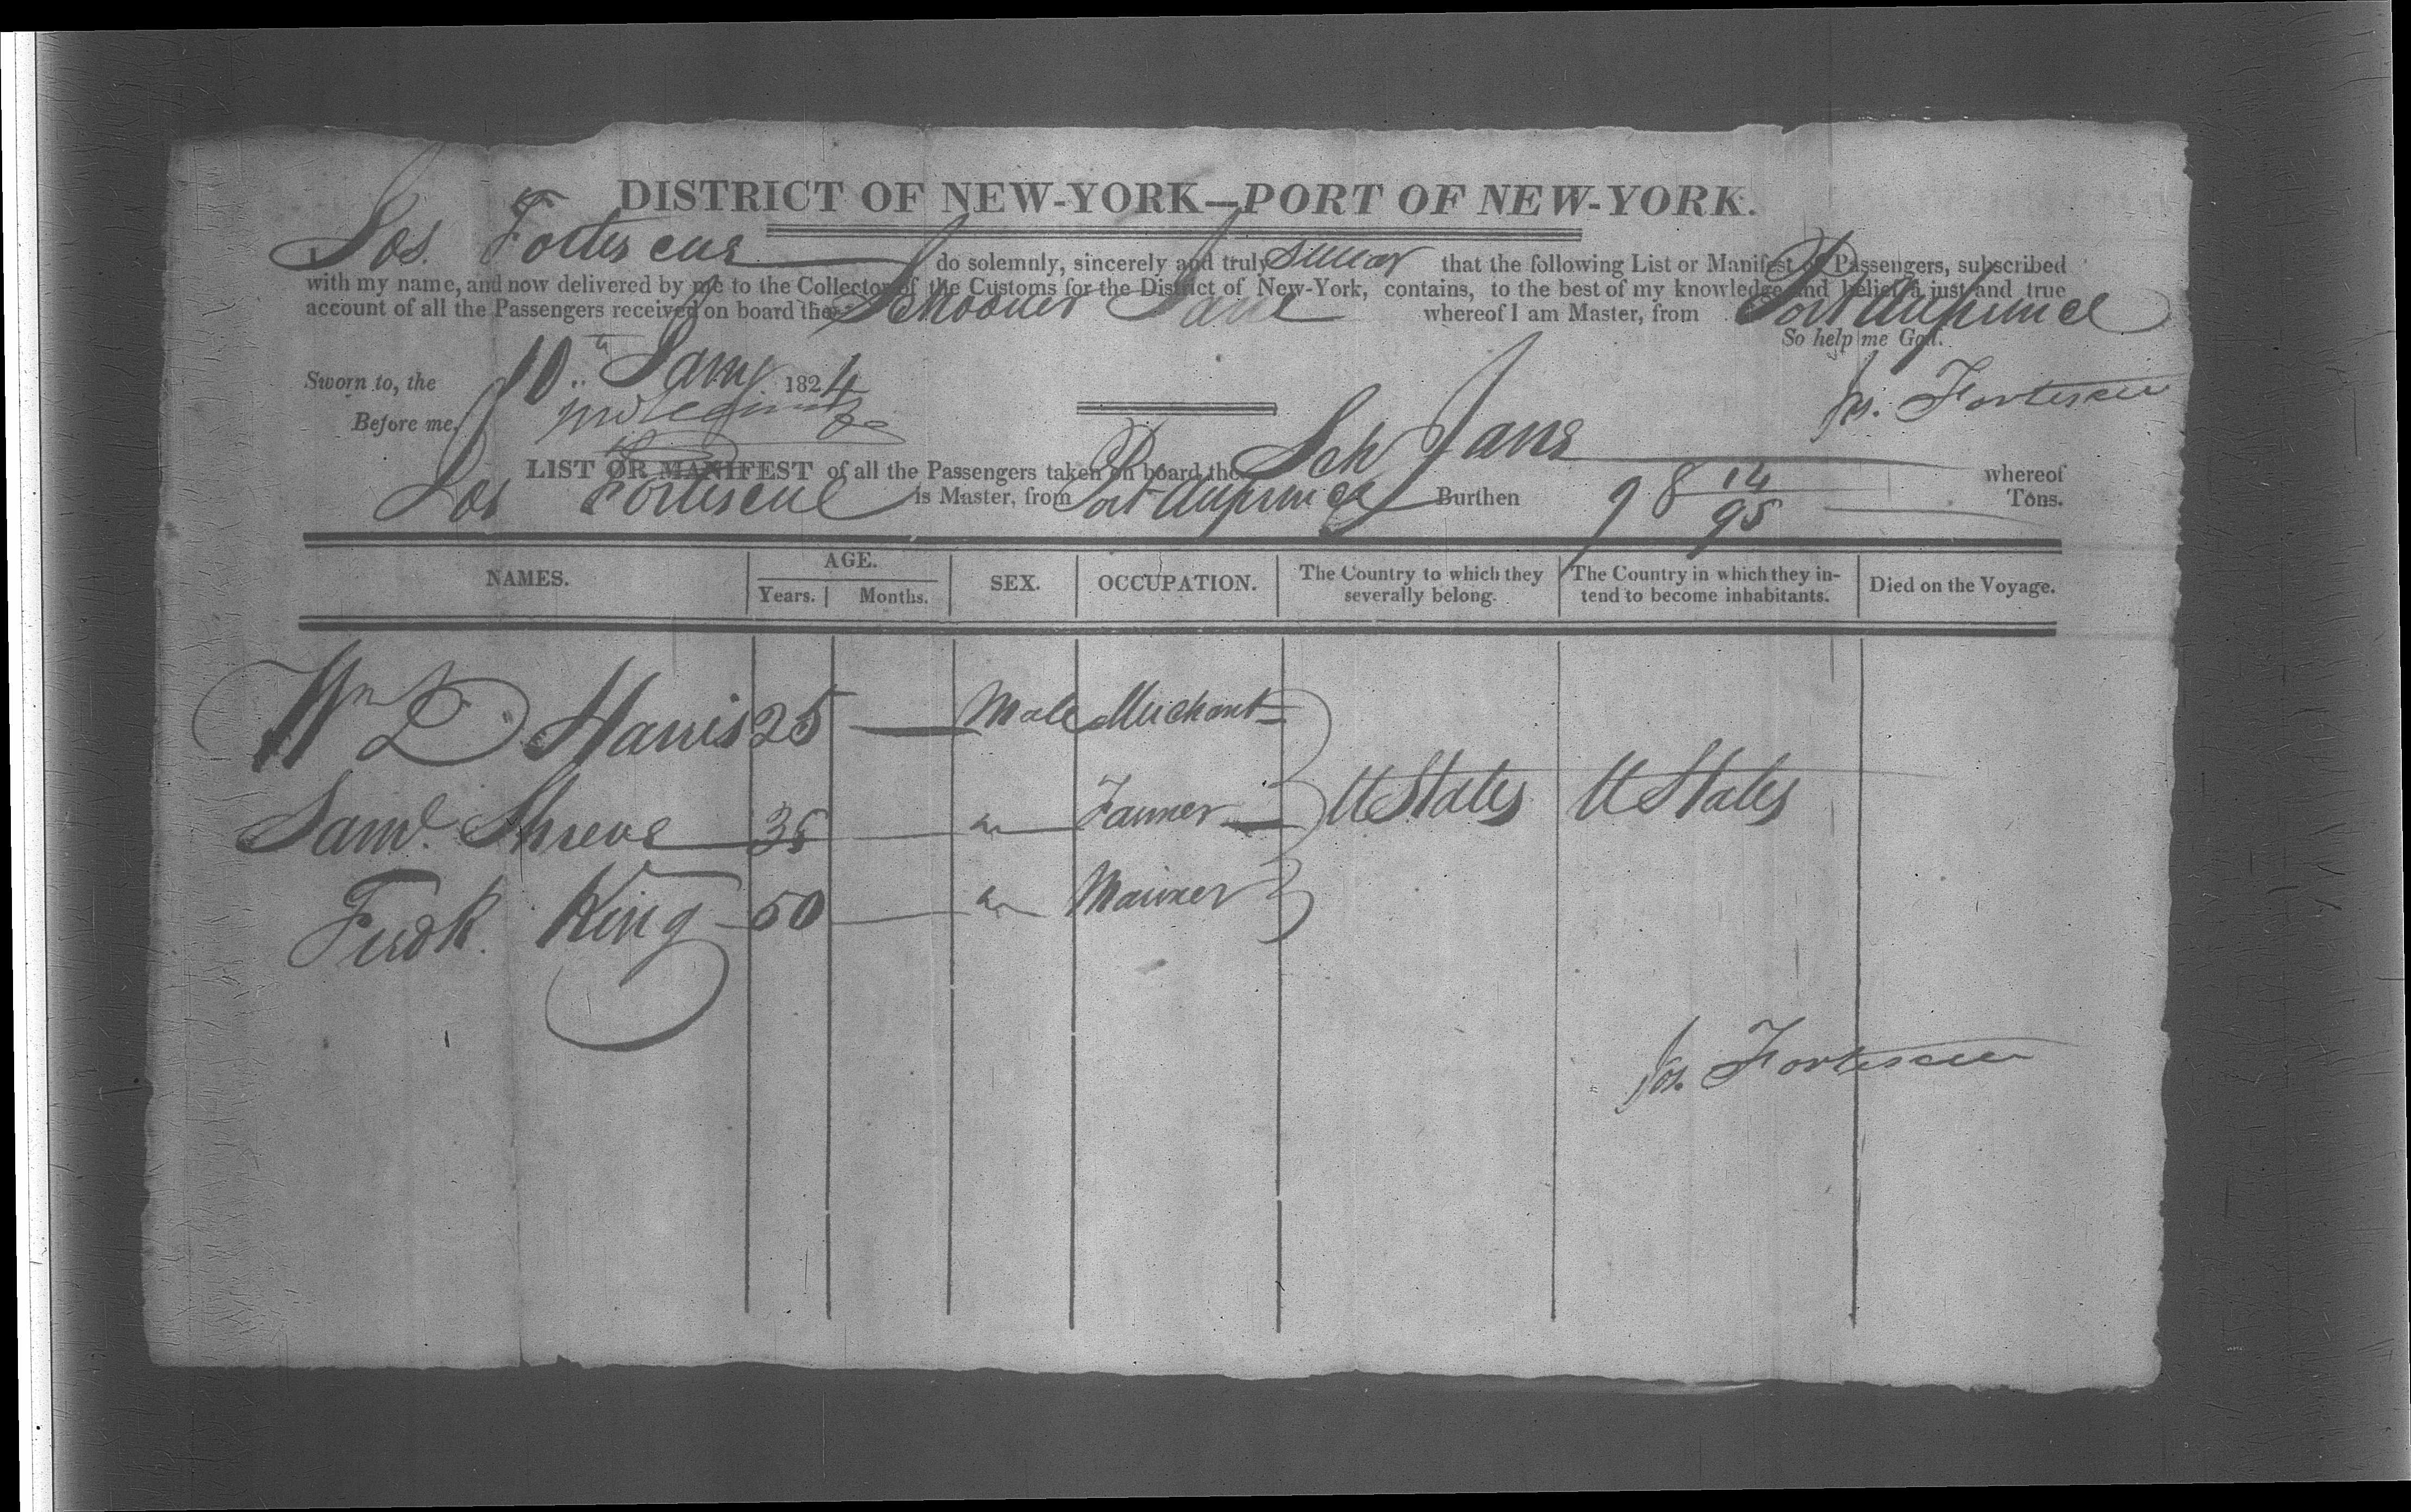 DISTRICT OF NEW-YORK—PORT OF NEW-YORK.
Jos. Fortescue do solemnly, sincerely and truly swear that the following List or Manifest of Passengers, subscribed
with my name, and now delivered by me to the Collector of the Customs for the District of New-York, contains, to the best of my knowledge and belief, a just and true
account of all the Passengers received on board the Schooner Jane whereof I am Master, from Port au prince
So help me God.
Sworn to, the 10th Jany 1824
Jos. Fortescue
Before me,
LIST OR MANIFEST of all the Passengers taken on board the Sch Jane whereof
Jos Fortescue is Master, from Port au prince Burthen 98 14/95 Tons.
NAMES. AGE. Years. Months. SEX. OCCUPATION. The Country to which they severally belong. The Country in which they intend to become inhabitants. Died on the Voyage.
Wm D Harris 25 — Male Merchant
Saml. Shreve 35 — " Farmer — U States U States
Fredk. King 50 — " Mariner
Jos. Fortescue